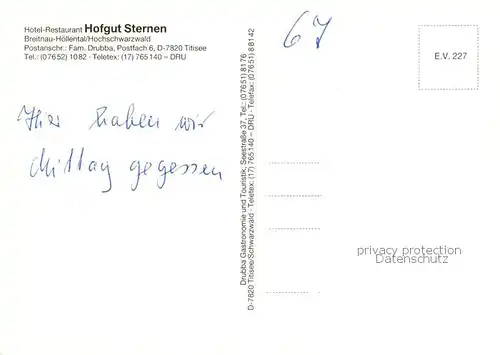 Hotel-Restaurant Hofgut Sternen
Breitnau-Höllental/Hochschwarzwald
Postanschr.: Fam. Drubba, Postfach 6, D-7820 Titisee
Tel.: (07652) 1082 · Teletex: (17) 765140 – DRU
67
E.V. 227
Hier haben wir
Mittag gegessen
Drubba Gastronomie und Touristik, Seestraße 37, Tel.: (07651) 8176
D-7820 Titisee/Schwarzwald · Teletex: (17) 765140 – DRU · Telefax: (07651) 88142
privacy protection
Datenschutz